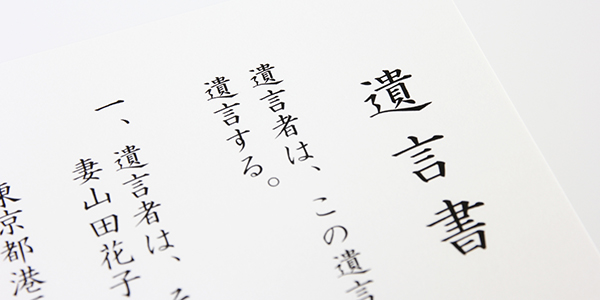 遺言書
遺言者は、この遺言
遺言する。
一、遺言者は、
妻山田花子
東京都港